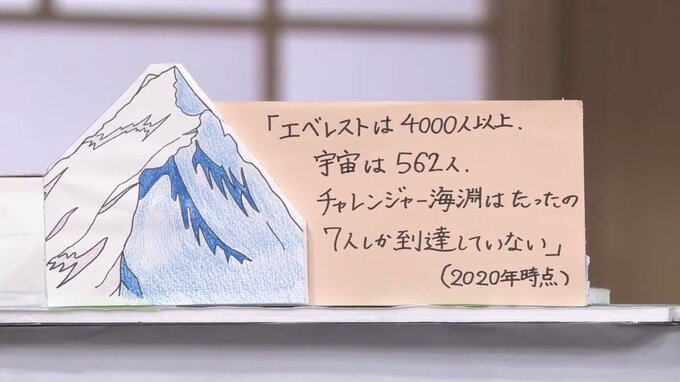 「エベレストは4000人以上、
宇宙は562人、
チャレンジャー海淵はたったの
7人しか到達していない」
(2020年時点)